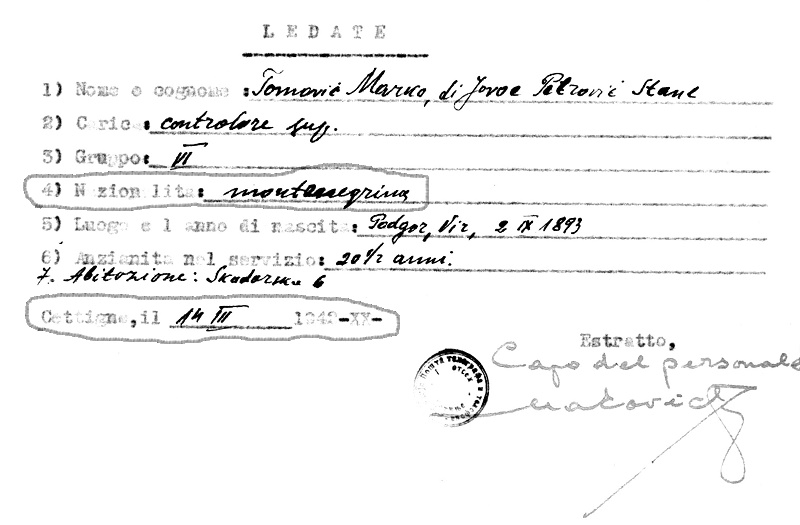 L E D A T E
1) Nome e cognome : Tomović Marko, di Jovoe Petrović Stane
2) Carica: controlore sup.
3) Gruppo: VI
4) Nazionalita: montenegrina
5) Luogo e l anno di nascita: Podgor, Vir, 2 IX 1893
6) Anzianita nel servizio: 20 1/2 anni.
7. Abitazione: Skadarska 6
Cettigne, il 14 III 1942-XX-
Estratto,
Capo del personale